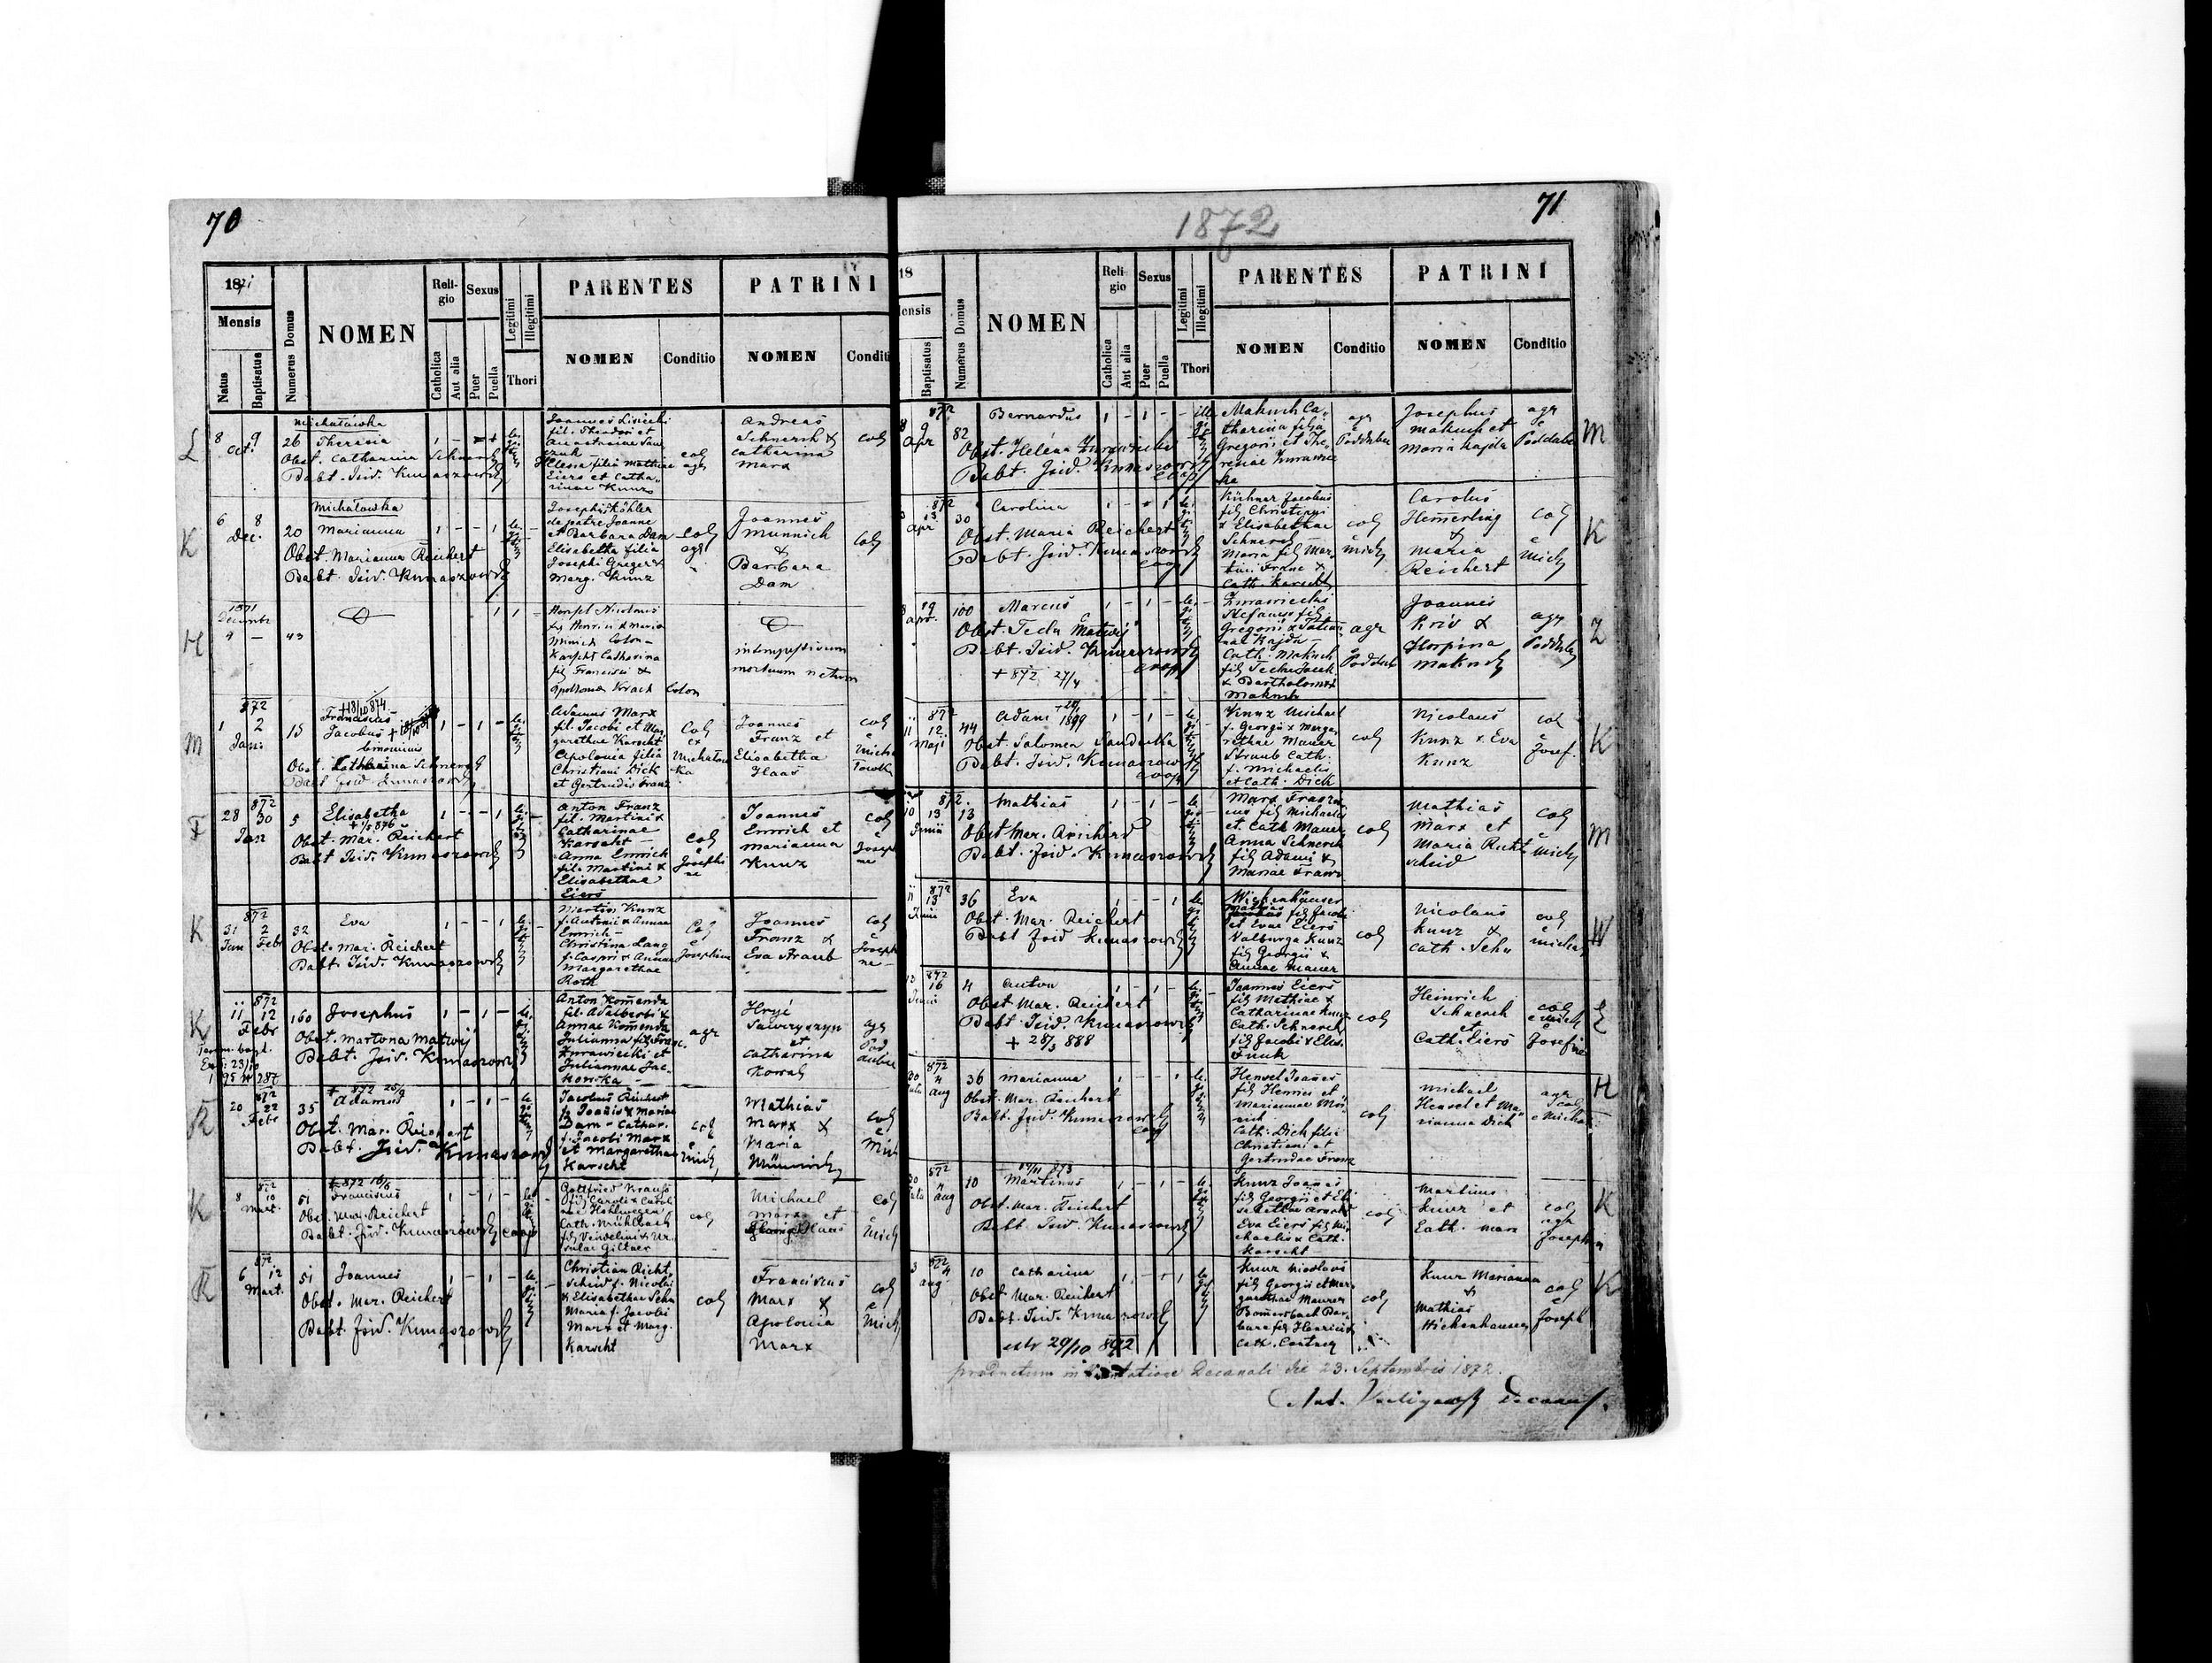 70
1871
Mensis
Natus
Baptisatus
Numerus Domus
NOMEN
Religio
Catholica
Aut alia
Sexus
Puer
Puella
Legitimi
Illegitimi
Thori
PARENTES
NOMEN
Conditio
PATRINI
NOMEN
Conditi
L
8 9
Oct.
Michałówka
26 Theresia
Obst. Catharina Schnerch
Babt. Isid. Kumaszowski
fil. Theodori et
Elessa filia Mathiae
Eiers et Catha-
rinae Kunz
col
agr
Andreas
Schnerch &
Catharina
Marx
col
K
6 8
Dec.
Michałowka
20 Marianna
Obst. Marianna Reichert
Babt. Isid. Kumaszowski
Josephus Köhler
de patre Joanne
et Barbara Dam
Elisabetha filia
Josephi Greger &
Marg. Kunz
col
agr
Joannes
Munnich
&
Barbara
Dam
col
H
1871
Decembr
4 — 43
Hensel Nicolaus
fil Henrici & Maria
Münich Colon-
Karscht Catharina
fil Francisci &
Apollonia Krach
Colon
intempestivum
mortuum natum
M
872
1 2
Jan.
15
+ 18/10 874
Franciscus
Jacobus
Obst. Catharina Schnerch
Babt Isid. Kumaszowski
Adamus Marx
fil. Jacobi et Mar-
garethae Karscht
Apolonia filia
Christiani Dick
et Gertrudis Franz
Col
ex
Michałow
ka
Joannes
Franz et
Elisabetha
Haas
col
F
872
28 30
Jan
5 Elisabetha
+ 1/5 876
Obst. Mar. Reichert
Babt Isid. Kumaszowski
Anton Franz
fil. Martini &
Catharinae
Karscht —
Anna Emrich
fil. Martini &
Elisabethae
Eiers
col
Josephi
ne
Joannes
Emrich et
Marianna
Kunz
col
Joseph
ne
K
872
31 2
Jan Febr
32 Eva
Obst. Mar. Reichert
Babt. Isid. Kumaszowski
Martin Kunz
f. Antonii & Annae
Emrich —
Christina Lang
f. Caspri & Annae
Margarethae
Roth
Col
Josephine
Joannes
Franz &
Eva Straub
col
Joseph
ne —
K
872
11 12
Febr
160 Josephus
Obst. Martona Matwij
Babt. Isid. Kumaszowski
Anton Komenda
fil. Adalberti &
Annae Komenda
Julianna fil Franc.
Żurawiecki et
Juliannae Jac-
kowska —
agr
Hryć
Sawczyszyn
et
Catharina
Kowal
agr
K
872
20 22
Febr
35
+ 872 25/9
Adamus
Obst. Mar. Reichert
Babt. Isid. Kumaszowski
Jacobus Reichert
f. Joanis & Mariae
Dam — Cathar.
f. Jacobi Marx
et Margarethae
Karscht
col
Mich
Mathias
Marx &
Maria
Münnich
col
Mich
K
872
8 10
Mart.
51
+ 872 16/6
Franciscus
Obst. Mar. Reichert
Babt. Isid. Kumaszowski coop
Gottfried Kraus
fil Caroli & Carol
Cath. Mühlbach
fil Vendelini & Ur-
sulae Giltner
col
Michael
Marx et
Haas
col
Mich
R
872
6 12
Mart.
51 Joannes
Obst. Mar. Reichert
Babt. Isid. Kumaszowski
Christian Richt-
scheid f. Nicolai
& Elisabethae Sehn
Maria f. Jacobi
Marx et Marg.
Karscht
col
Franciscus
Marx &
Apolonia
Marx
col
Mich
71
1872
18
ensis
Baptisatus
Numerus Domus
NOMEN
Religio
Catholica
Aut alia
Sexus
Puer
Puella
Legitimi
Illegitimi
Thori
PARENTES
NOMEN
Conditio
PATRINI
NOMEN
Conditio
872
8 9
Apr
82 Bernardus
Obst. Helena Żurawiecka
Babt. Isid. Kumaszowski
coop
Makuch Ca-
tharina filia
Gregorii et The-
resiae Żurawiec
ka
agr
Poddubce
Josephus
Makuch et
Maria Kajda
agr
Poddubce
M
872
13
Apr
30 Carolina
Obst. Maria Reichert
Babt. Isid. Kumaszowski
coop
Kühner Jacobus
fil Christiani
& Elisabethae
Schnerch —
Maria fil Mar-
tini Franz &
Cath. Karscht
col
Mich
Carolus
Hemerling
&
Maria
Reichert
col
Mich
K
8 19
Apr.
100 Marcus
Obst. Tecla Matwij
Babt. Isid. Kumaszowski
coop
+ 872 27/4
Żurawiecki
Stefanus fil
Gregorii & Tatian
nae Kajda —
Cath. Makuch
& Bartholomei
Makuch
agr
Poddub
Joannes
Kriv &
Horpina
Makuch
agr
Poddub
Z
872
11 12
Maji
44 Adam
1899
Obst. Salomea Sandutka
Babt. Isid. Kumaszow
coop
Kunz Michael
f. Georgii & Marga
rethae Mauer
Straub Cath.
f. Michaelis
et Cath. Dick
col
Nicolaus
Kunz & Eva
Kunz
col
Josef.
K
872
10 13
Junii
13 Mathias
Obst Mar. Reichert
Babt. Isid. Kumaszowski
Marx Francis-
cus fil Michaelis
et Cath Mauer
Anna Schnerch
fil Adami &
Mariae Franz
col
Mathias
Marx et
Maria Richt
scheid
col
Mich
M
872
11 13
Junii
36 Eva
Obst. Mar. Reichert
Babt Isid Kumaszowski
Wichenhäuser
Mathias fil Jacobi
et Evae Eiers
Valburga Kunz
fil Georgii &
Annae Mauer
col
Nicolaus
Kunz &
Cath. Sehn
col
W
872
13 16
Junii
4 Anton
Obst Mar. Reichert
Babt. Isid. Kumaszowski
+ 28/3 888
Joannes Eiers
fil Mathiae &
Catharinae Kunz
Cath. Schnerch
fil Jacobi & Elis.
Funk
col
Heinrich
Schnerch
et
Cath. Eiers
col
Josefine
E
872
30 4
Aug
36 Marianna
Obst. Mar. Reichert
Babt. Isid. Kumaszowski
coop
Hensel Joanes
fil Henrici et
Mariannae Mün
nich
Cath. Dick filia
Christiani et
Gertrudae Franz
col
Michael
Hensel et Ma-
rianna Dick
H
872
30 4
Aug
10 Martinus
Obst. Mar. Reichert
Babt. Isid. Kumaszowski
Kunz Joanes
fil Georgii et Eli
Eva Eiers fil Mi-
chaelis & Cath.
Karscht
col
Martinus
Kunz et
Cath. Marx
col
agr
K
872
3 4
Aug
10 Catharina
Obst Mar. Reichert
Babt. Isid. Kumaszowski
extr 29/10 892
Kunz Nicolaus
fil Georgii et Mar-
garethae Maurer
Bomersbach Bar-
bara fil Henrici &
Cath. Contner
col
Kunz Marianna
&
Mathias
Wichenhauser
col
Joseph
K
productum in visitatione Decanali die 23. Septembris 1872.
Decanus.